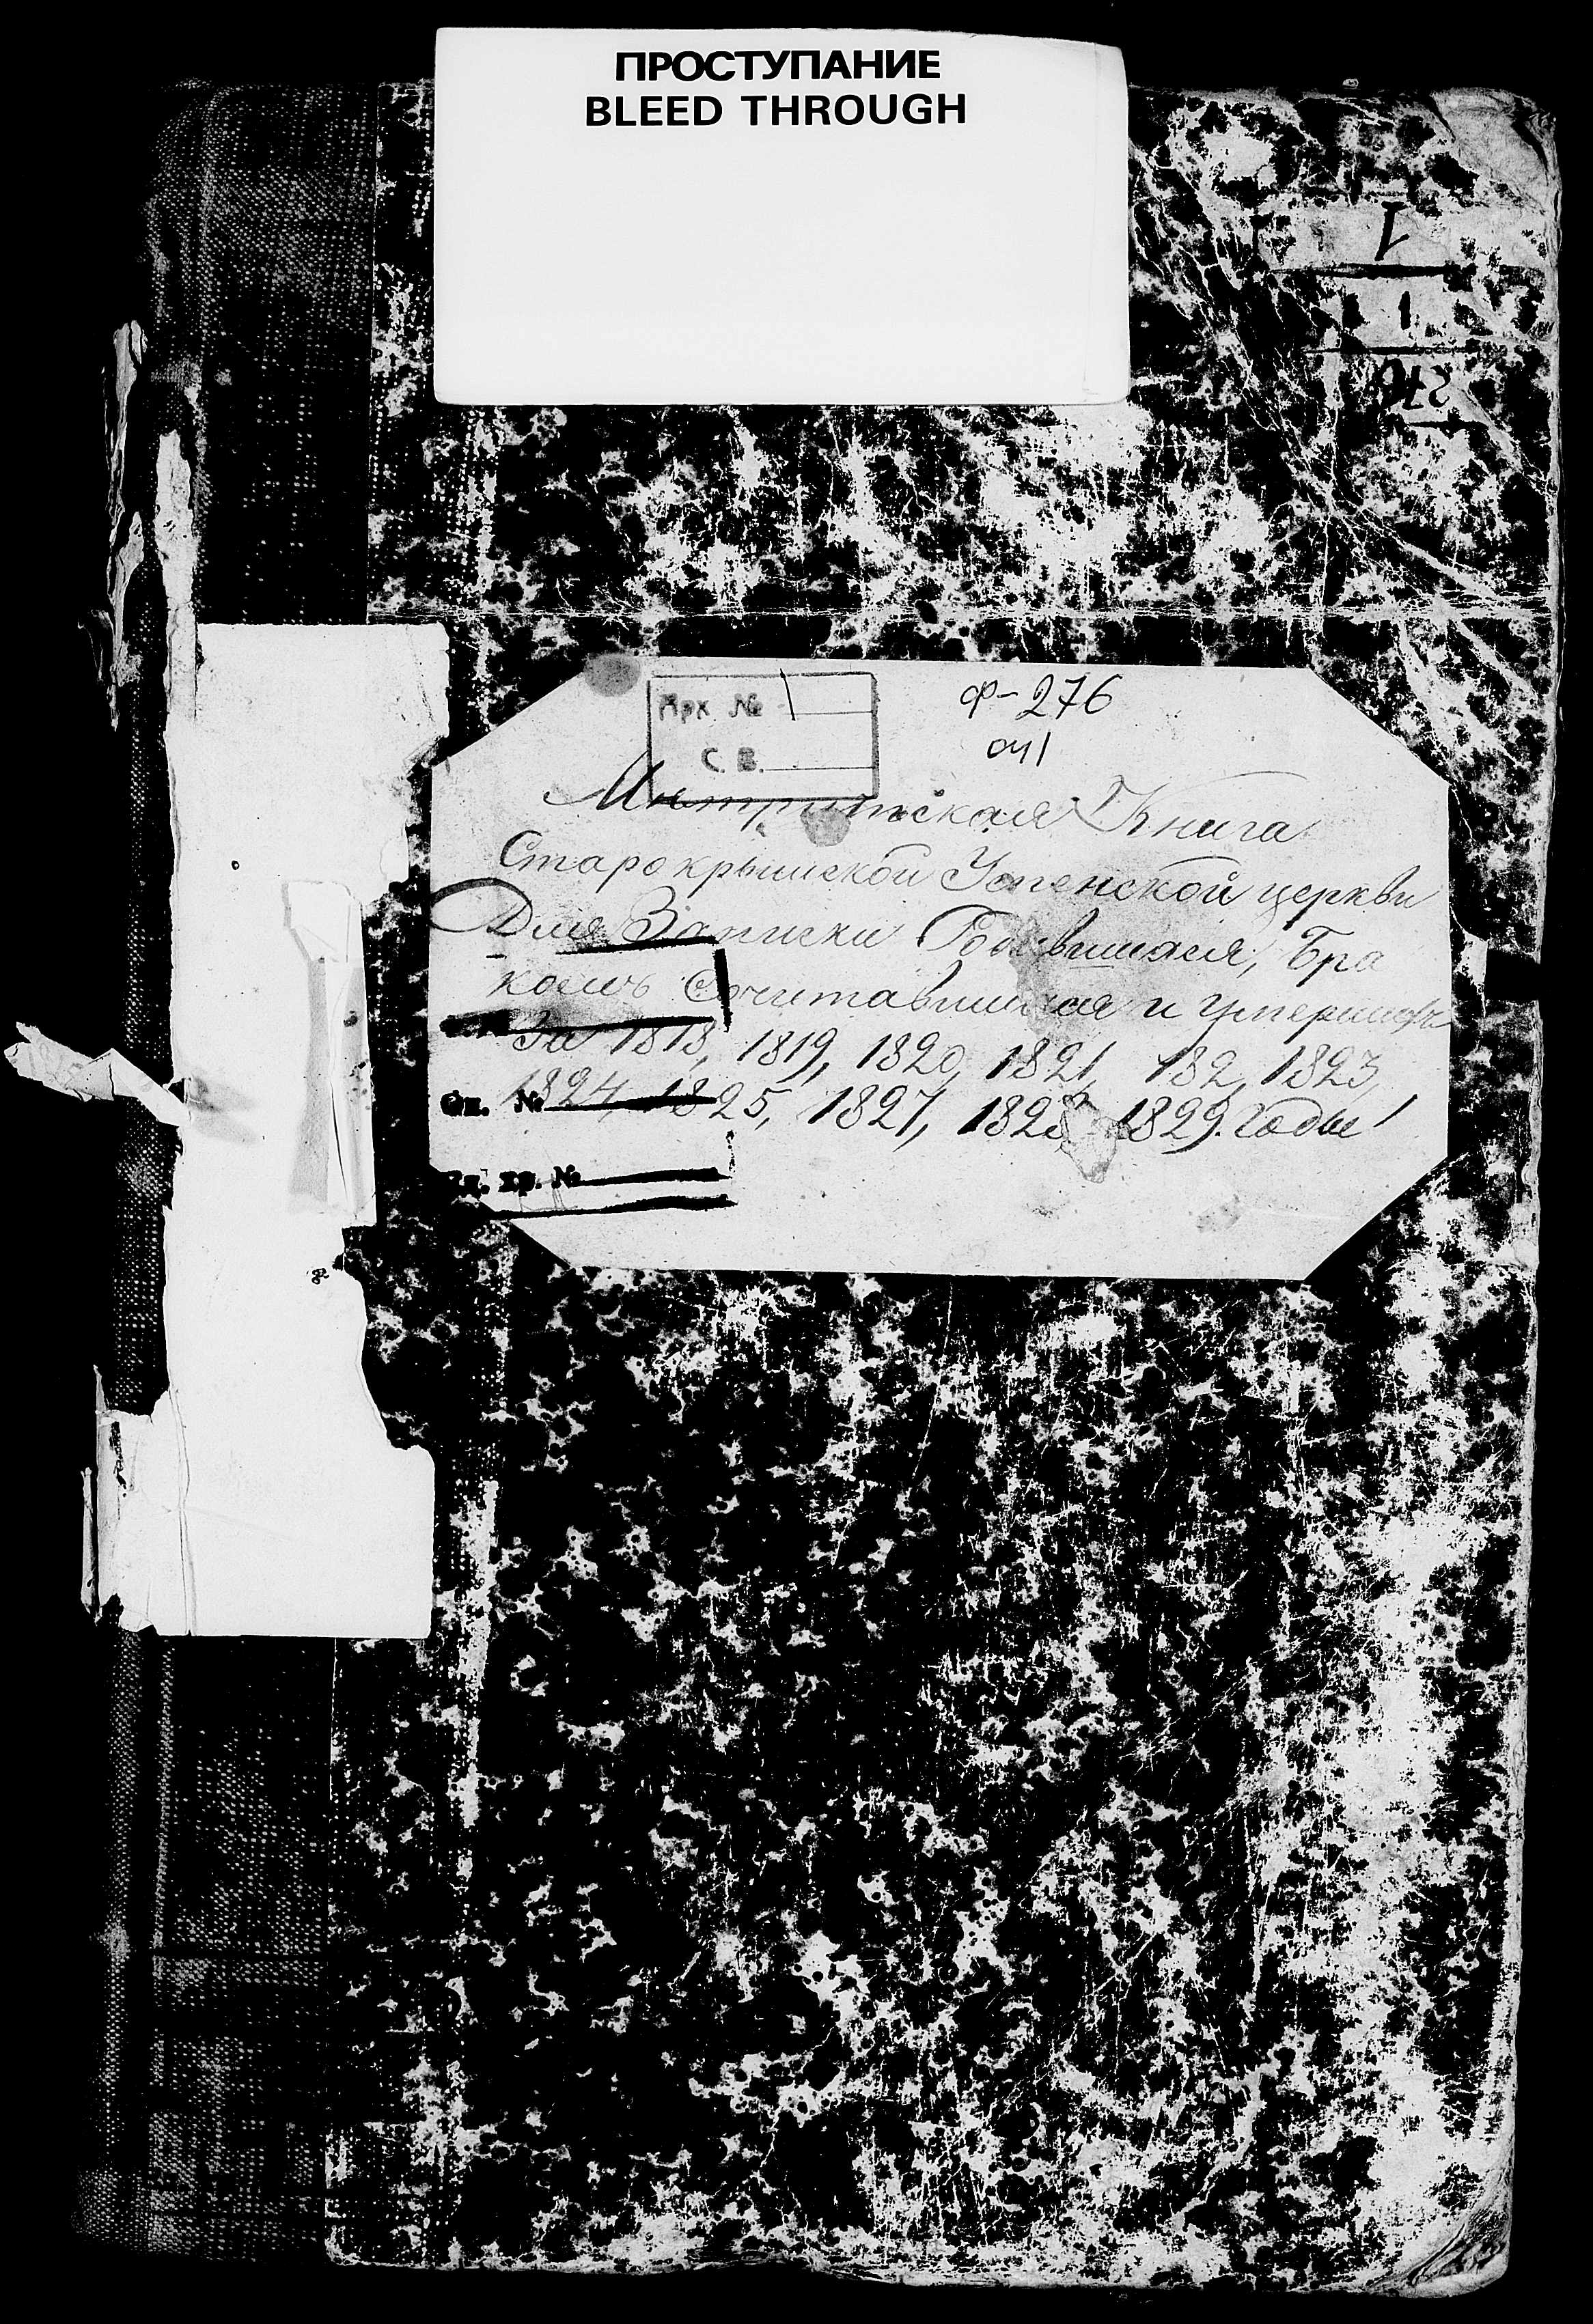 ПРОСТУПАНИЕ
BLEED THROUGH
1
1
276
Арх. № 1
С. В.
Ф-276
оп1
Метрическая Книга
Старокрымской Успенской церкви
Для Записки Родившихся, Бра
комъ Сочитавшихся и умершихъ
За 1818, 1819, 1820, 1821, 182, 1823,
1824, 1825, 1827, 1828, 1829. годы
Оп. №
Ед. хр. №